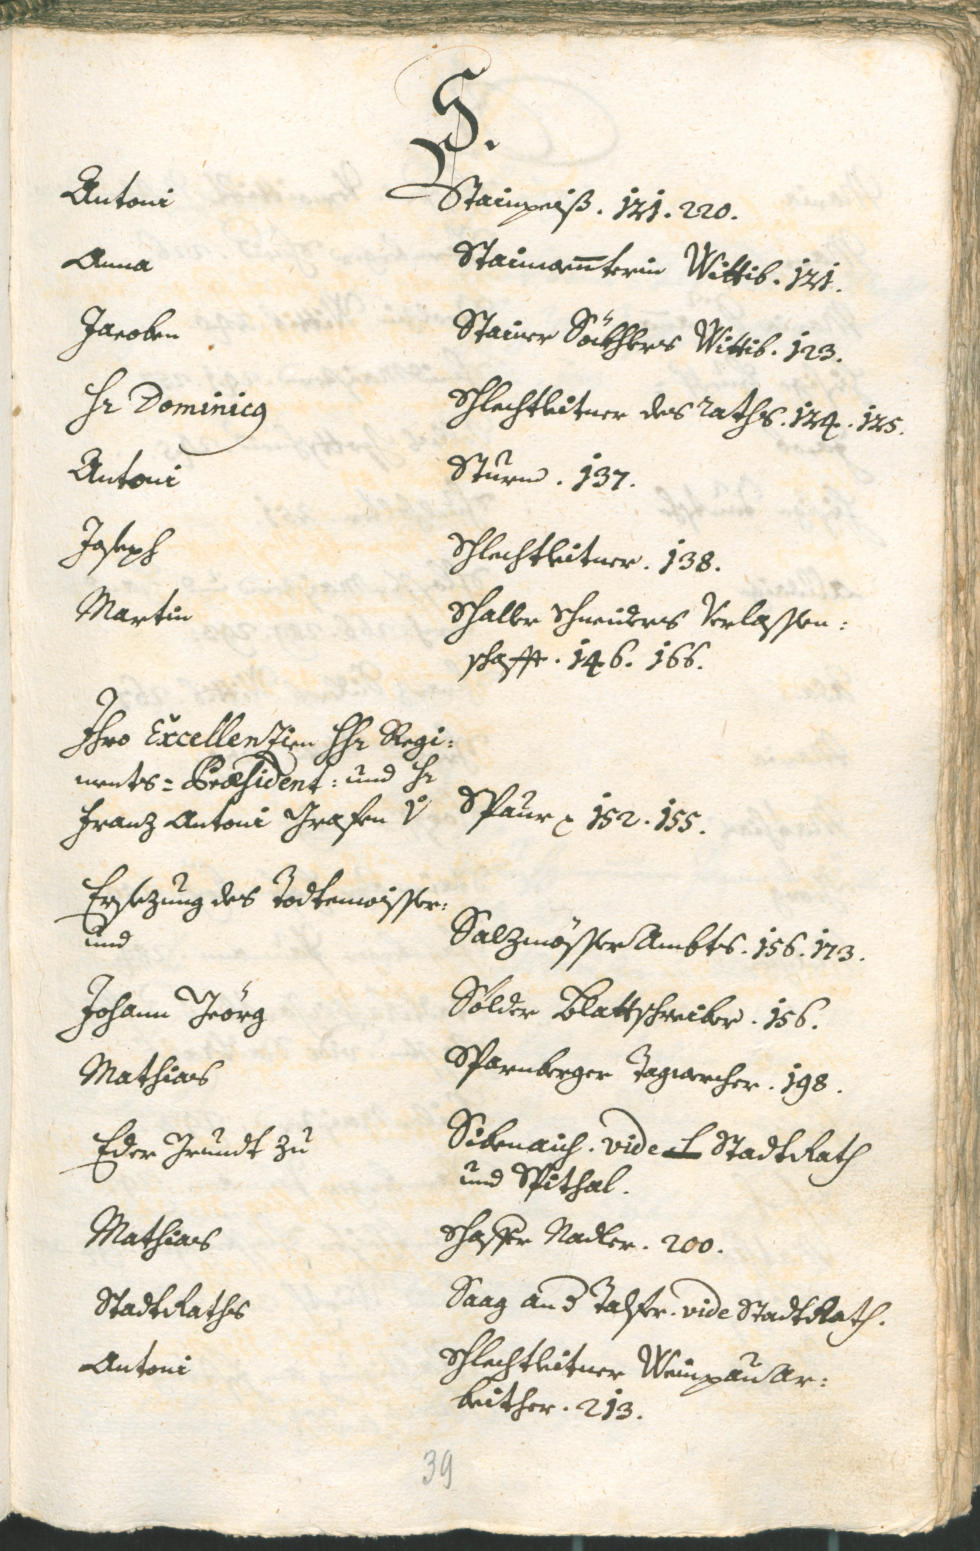 S.
Antoni Stainpeiß. 121. 220.
Anna Staimar̅terin Wittib. 121.
Jacoben Stainer Söckhlers Wittib. 123.
Hr Dominicq Schlechtleitner des raths. 124. 125.
Antoni Sturm. 137.
Joseph Schlechtleitner. 138.
Martin Schaller Schneiders Verlassen:
schafft. 146. 166.
Ihro Excellenzien HHr Regi:
ments=Præsident: und Hr
Franz Antoni Grafen v Spaur 152. 155.
Ersezung des Todtenvisser:
und Salzmösser Ambts. 156. 173.
Johann Georg Sölder Blattschreiber. 156.
Mathias Sparnberger Tagwercher. 198.
Eder Grundt zu Sibenaich. vide StadtRath
und Spithal.
Mathias Schaffer Nadler. 200.
StadtRaths Saag an d Talfer. vide StadtRath.
Antoni Schlechtleitner Weinpau Ar:
beither. 213.
39